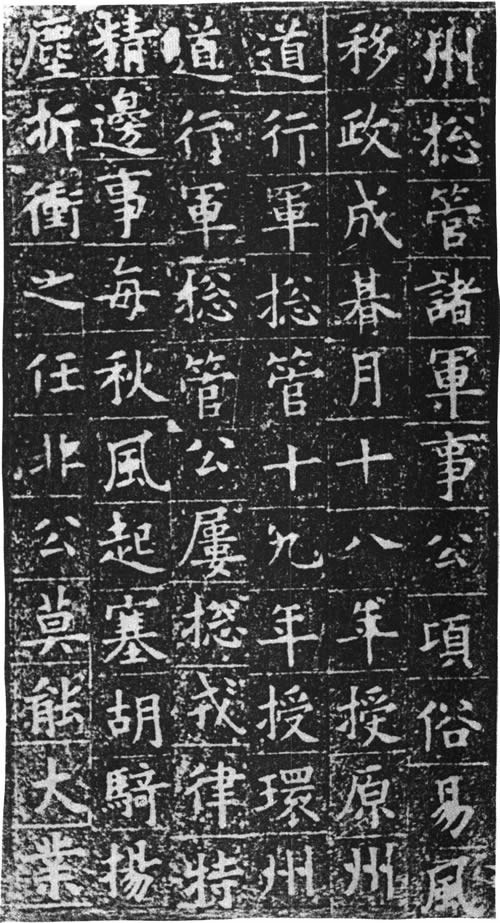 州揔管諸軍事公項俗易風
移政成暮月十八年授原州
道行軍揔管十九年授環州
道行軍揔管公屢揔戎律特
猜邊事每秋風起塞胡騎揚
塵折衝之任非公莫能大業